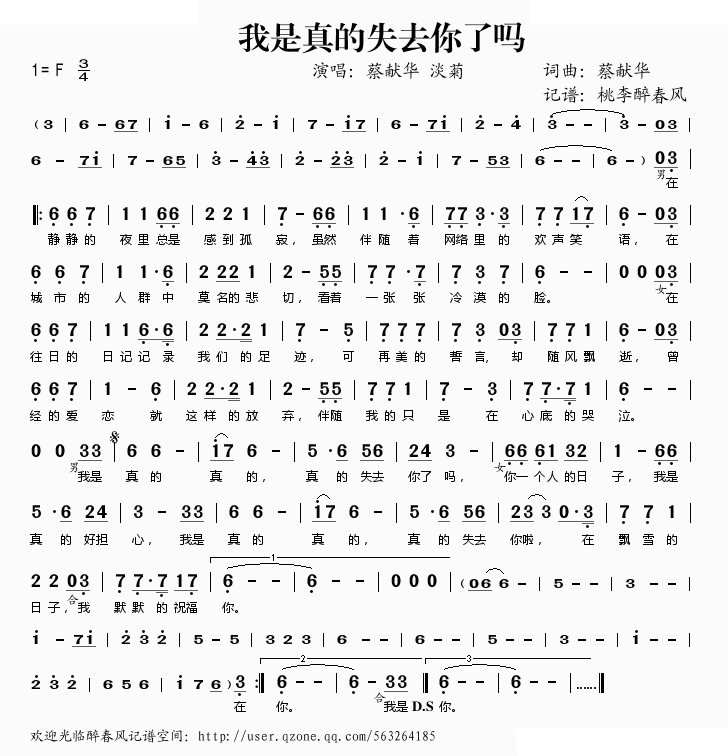 我是真的失去你了吗
1= F 3/4 演唱：蔡献华 淡菊 词曲：蔡献华
记谱：桃李醉春风
(3 | 6 - 67 | i - 6 | 2 - i | 7 - i7 | 6 - 7i | 2 - 4 | 3 - - | 3 - 03 |
6 - 7i | 7 - 65 | 3 - 43 | 2 - 23 | 2 - i | 7 - 53 | 6 - - | 6 - ) 03 |
男在
‖: 6 6 7 | 1 1 66 | 2 2 1 | 7 - 66 | 1 1 · 6 | 77 3 · 3 | 7 7 17 | 6 - 03 |
静静的 夜里总是 感到孤 寂，虽然 伴随着 网络里的 欢声笑 语，在
6 6 7 | 1 1 · 6 | 2 22 1 | 2 - 55 | 7 7 · 7 | 7 3 7 | 6 - - | 0 0 03 |
城市的 人群中 莫名的悲 切，看着 一张张 冷漠的 脸。 女在
6 6 7 | 1 1 6 · 6 | 2 2 · 2 1 | 7 - 5 | 7 7 7 | 3 03 | 7 7 1 | 6 - 03 |
往日的 日记记录 我们的足 迹，可 再美的 誓言，却 随风飘 逝，曾
6 6 7 | 1 - 6 | 2 2 · 2 1 | 2 - 55 | 7 7 1 | 7 - 3 | 7 7 · 7 1 | 6 - - |
经的爱 恋就 这样的放 弃，伴随 我的只 是在 心底的哭 泣。
0 0 33 | 6 6 - | i7 6 - | 5 · 6 56 | 24 3 - | 66 61 32 | 1 - 66 |
男我是 真的 真的， 真的失去 你了吗， 女你一个人的日 子，我是
5 · 6 24 | 3 - 33 | 6 6 - | i7 6 - | 5 · 6 56 | 23 3 0 · 3 | 7 7 1 |
真的好担 心，我是 真的 真的， 真的失去 你啦，在 飘雪的
2 2 03 | 7 7 · 7 17 | 1 6 - - | 6 - - | 0 0 0 | (06 6 - | 5 - - | 3 - - |
日子，合我 默默的祝福 你。
i - 7i | 2 3 2 | 5 - 5 | 3 2 3 | 6 - - | 6 - - | i - - | 2 - - | 3 - - |
2 3 2 | 6 5 6 | i 7 6 ) 3 :‖ 2 6 - - | 6 - 33 ‖ 3 6 - - | 6 - - |……‖
在 你。 合我是 D.S 你。
欢迎光临醉春风记谱空间：http://user.qzone.qq.com/563264185